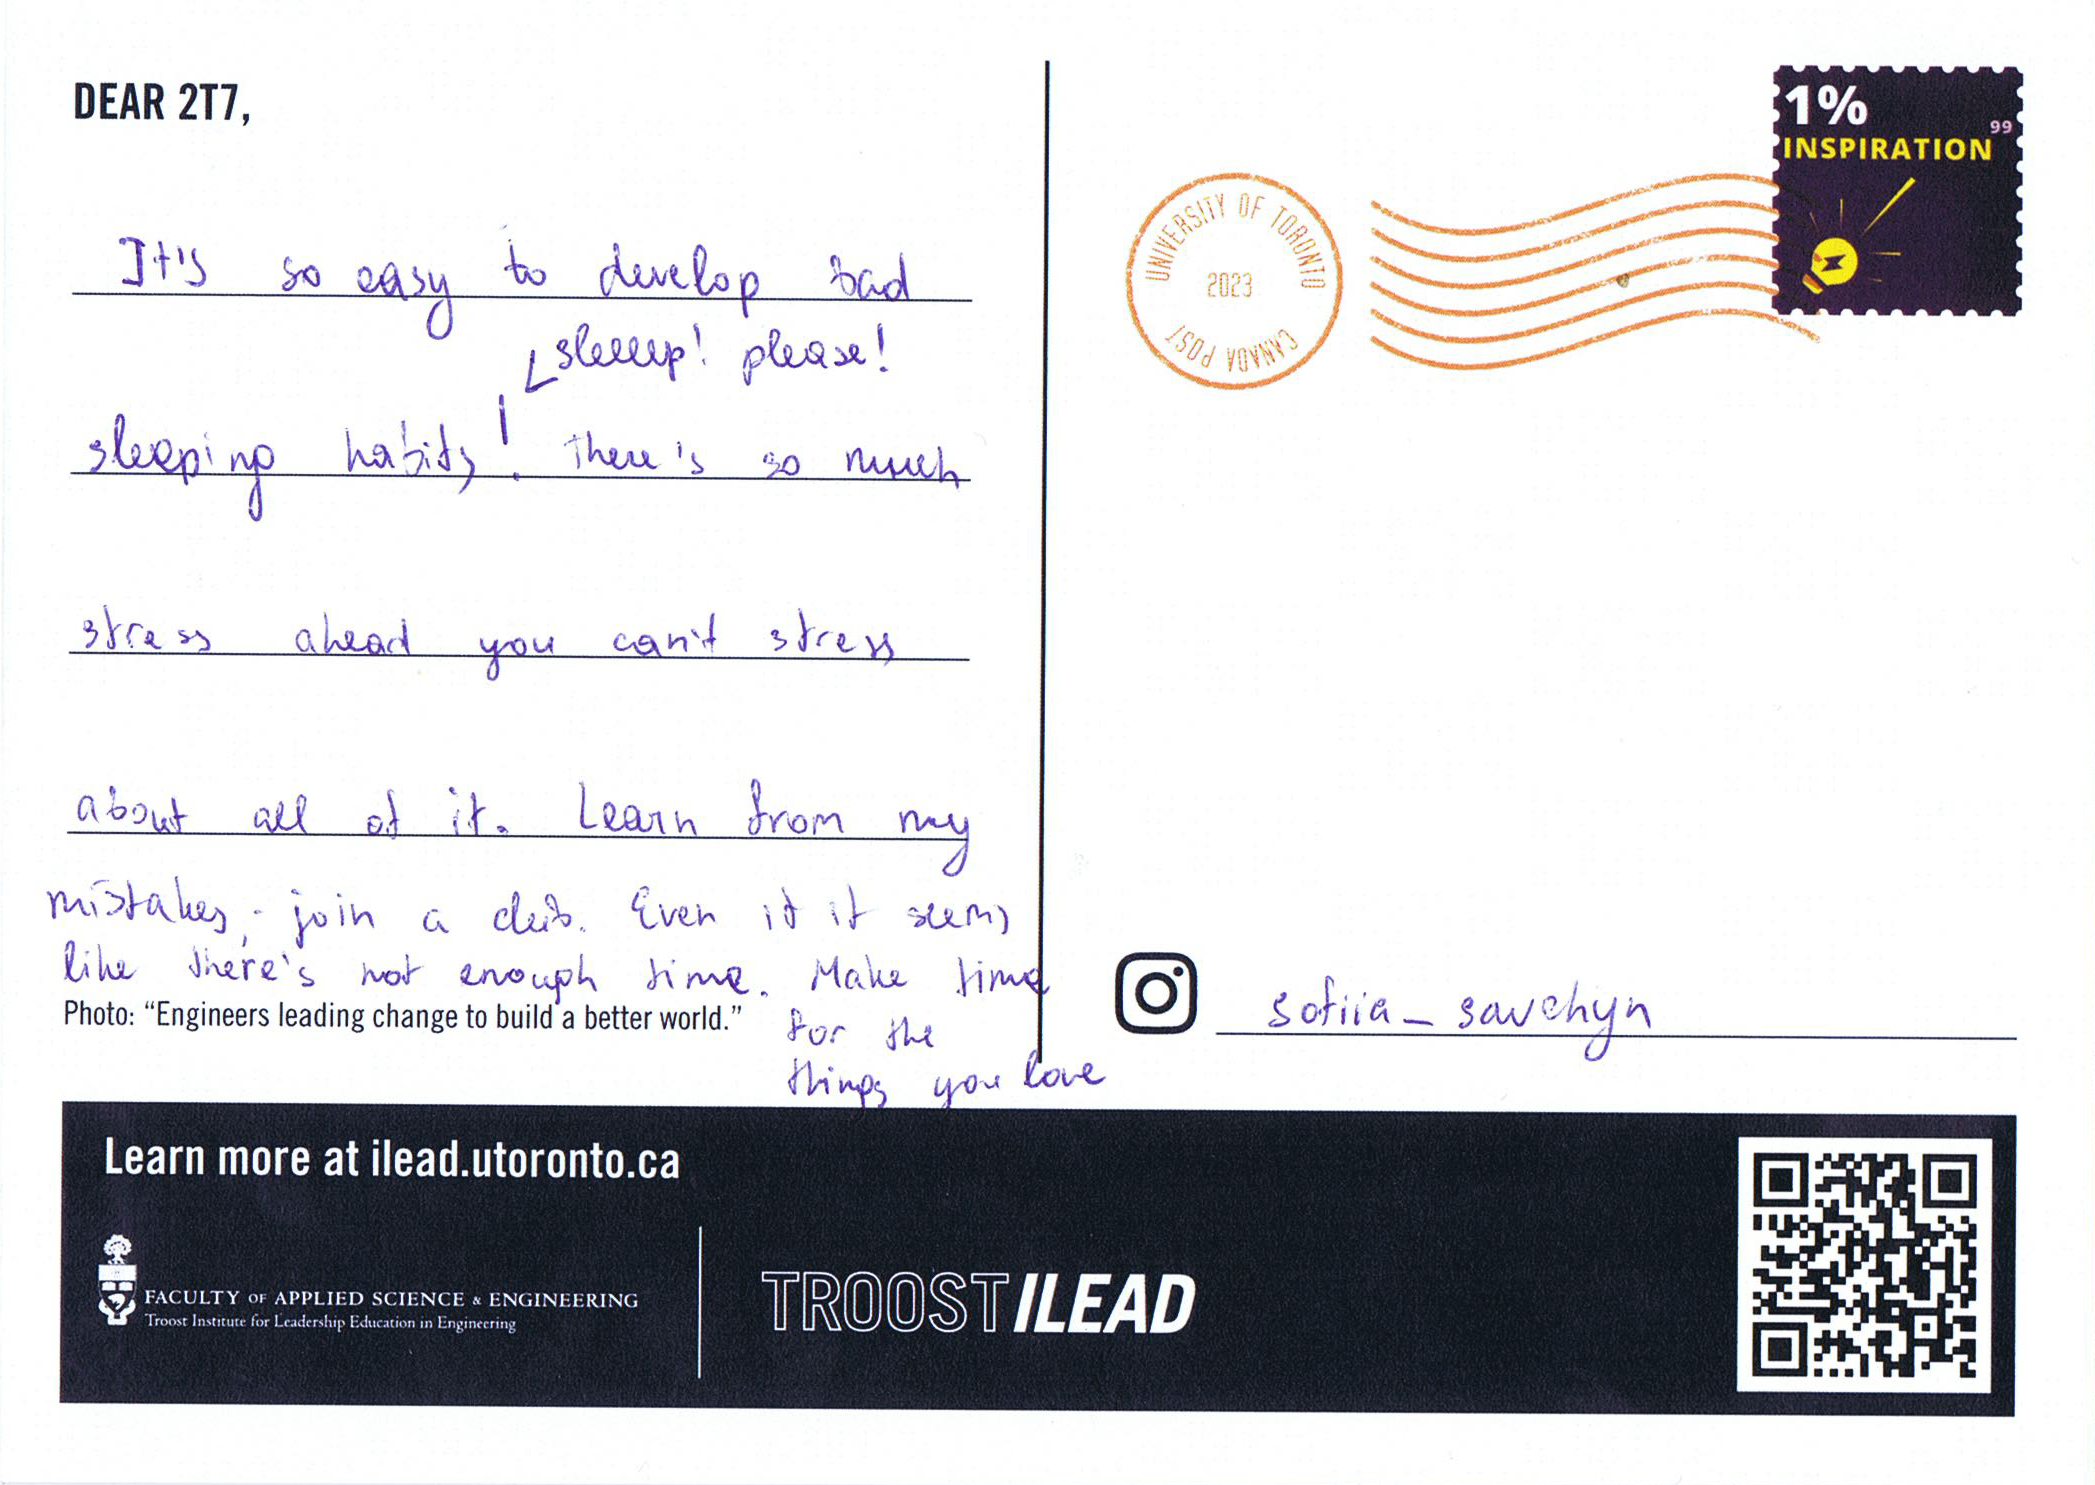 DEAR 2T7,
It's so easy to develop bad
sleeeep! please!
sleeping habits! There's so much
stress ahead you can't stress
about all of it. Learn from my
mistakes, - join a club. Even if it seems
like there's not enough time. Make time
for the
things you love
Photo: “Engineers leading change to build a better world.”
1%
99
INSPIRATION
UNIVERSITY OF TORONTO
2023
CANADA POST
sofiia_savchyn
Learn more at ilead.utoronto.ca
FACULTY OF APPLIED SCIENCE & ENGINEERING
Troost Institute for Leadership Education in Engineering
TROOST ILEAD